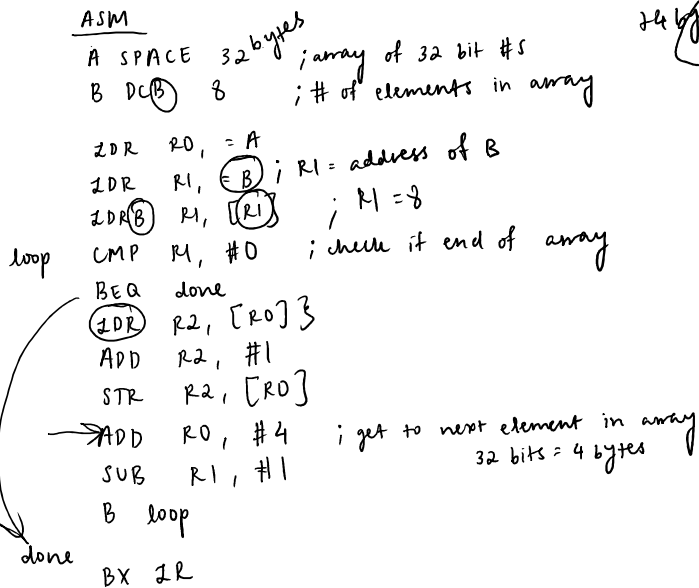 ASM
24 by
A SPACE 32 bytes ; array of 32 bit #s
B DCB 8 ; # of elements in array
LDR R0, = A
LDR R1, = B ; R1 = address of B
LDRB R1, [R1] ; R1 = 8
loop CMP R1, #0 ; check if end of array
BEQ done
LDR R2, [R0] }
ADD R2, #1
STR R2, [R0]
ADD R0, #4 ; get to next element in array
32 bits = 4 bytes
SUB R1, #1
B loop
done
BX LR